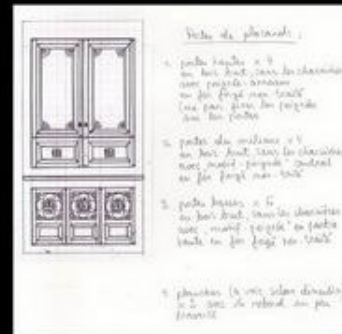 Portes de placards :
1. portes hautes x 4
en bois brut, sans les charnières
avec poignée
en fer forgé non traité
(ne pas fixer les poignées
sur les portes
2. portes du milieu x 4
en bois brut, sans les charnières
avec motif "poignée" central
en fer forgé non traité
3. portes basses x 6
en bois brut, sans les charnières
avec motif "poignée" en partie
haute en fer forgé non traité
4. planches (à voir selon
x 2 avec le rebord un peu
travaillé